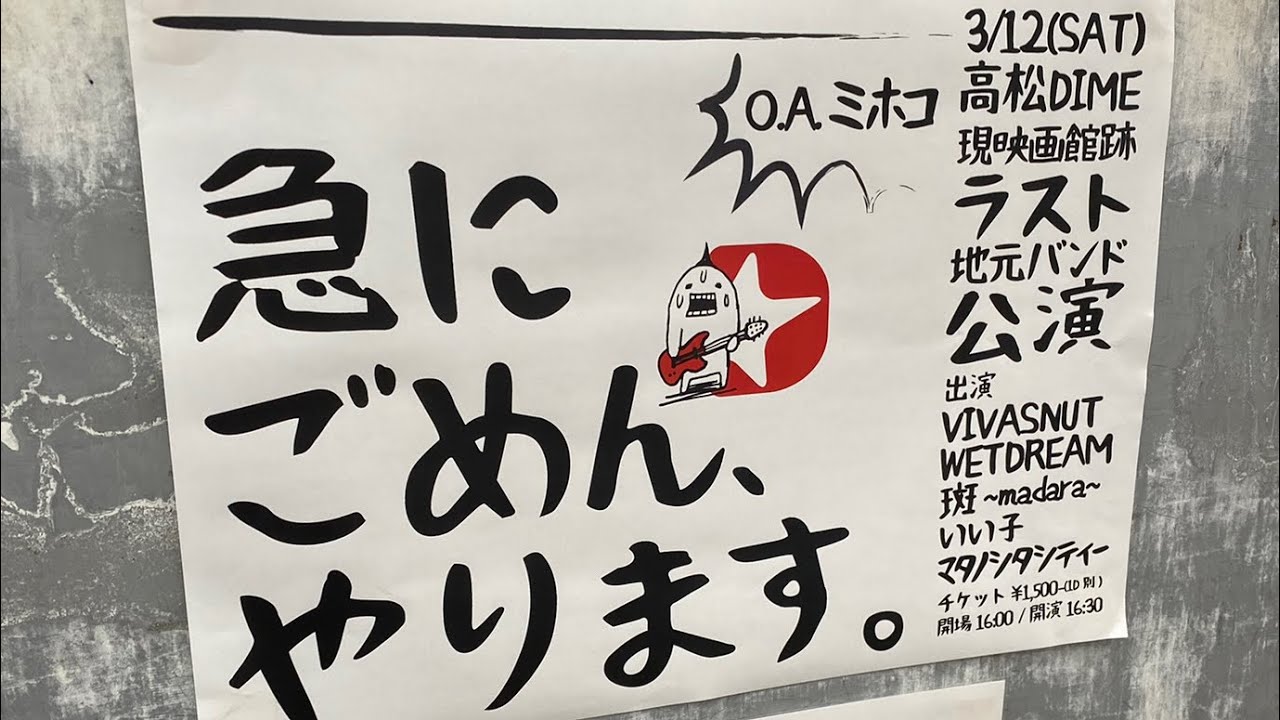 急に
ごめん、
やります。
O.A. ミホコ
3/12(SAT)
高松DIME
現映画館跡
ラスト
地元バンド
公演
出演
VIVASNUT
WETDREAM
斑 ~madara~
いい子
マタノシタシティー
チケット ¥1,500-(1D 別)
開場 16:00 / 開演 16:30